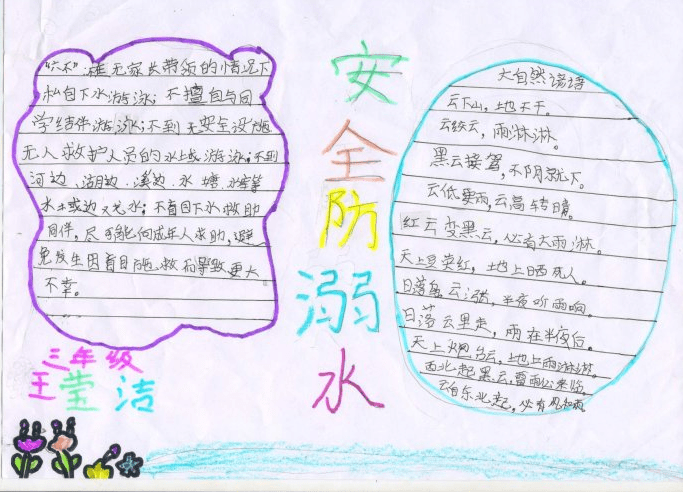 "六不"准无家长带领的情况下
私自下水游泳;不擅自与同
学结伴游泳;不到无安全设施
无人救护人员的水域游泳;不到
河边、湖边、溪边、水塘、水库等
水
同伴,尽可能向成年人求助,避
免发生因盲目施救而导致更大
不幸。
三年级
王莹洁
安全防溺水
大自然谚语
云下山,地不干。
云绞云,雨淋淋。
黑云接驾,不阴就下。
云低要雨,云高转晴。
红云变黑云,必有大雨淋。
日落云里走,雨在半夜后。
西北起黑云,雷雨必来临
云自东北起,必有风和雨